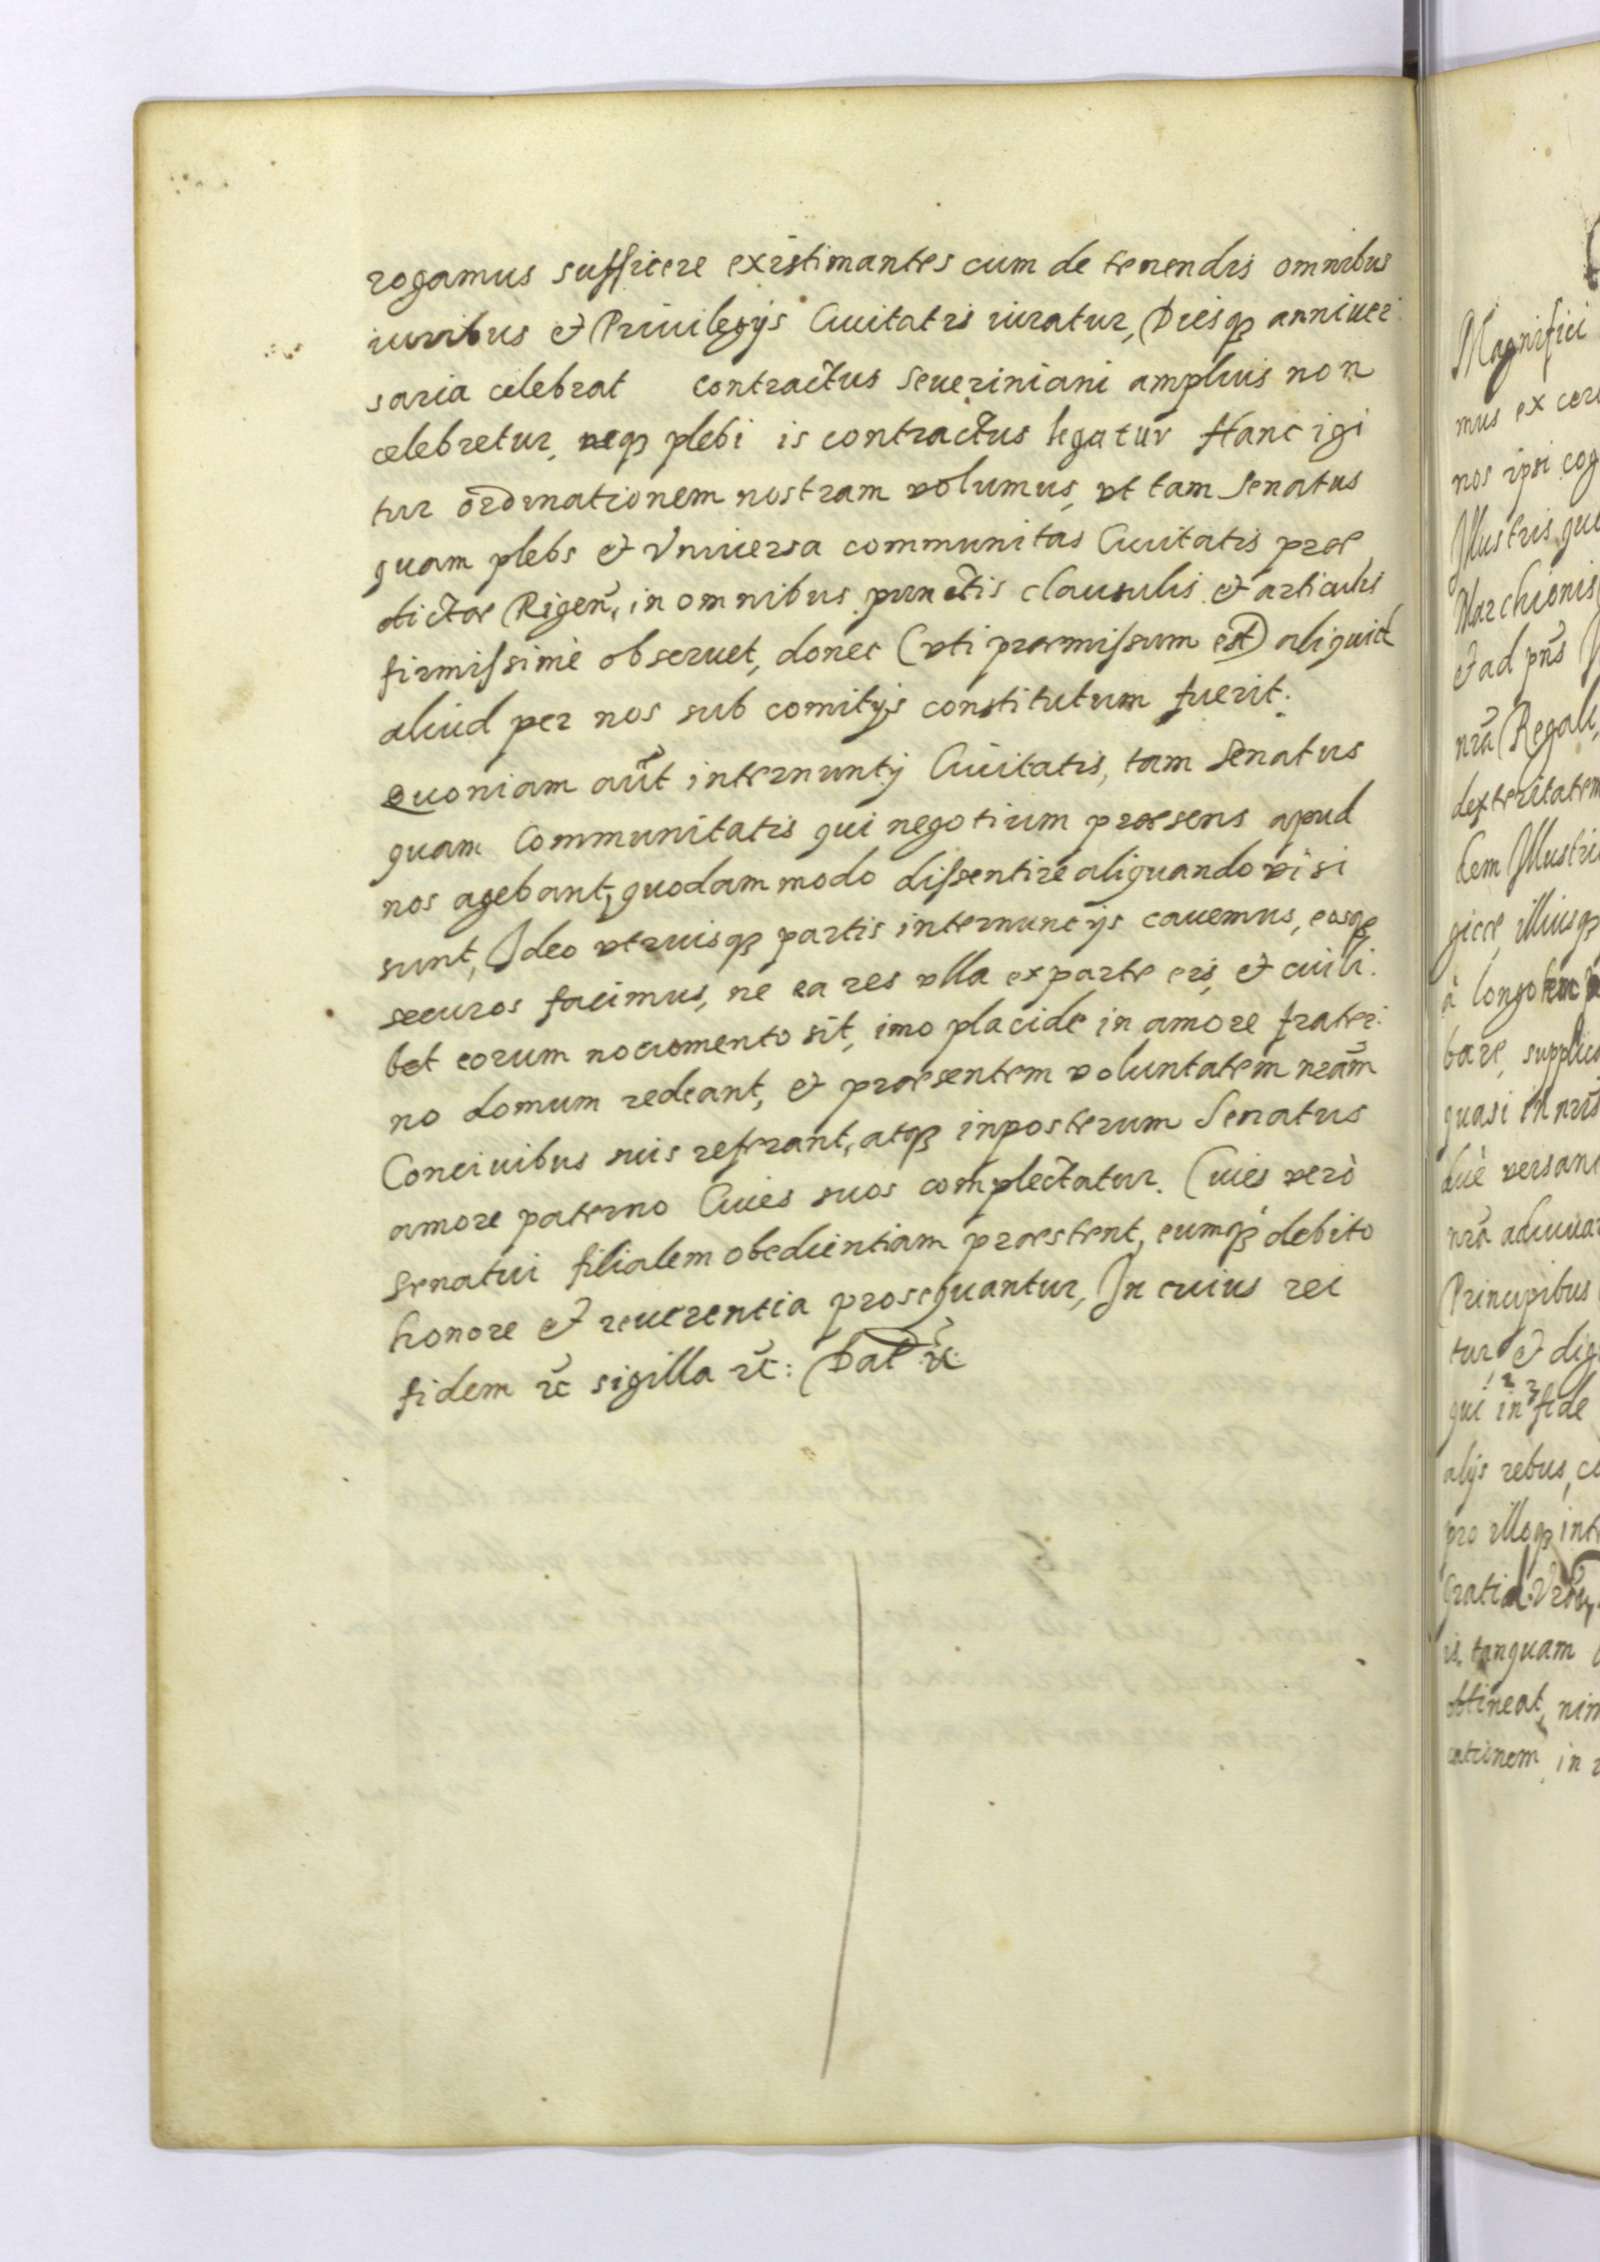 rogamus sufficere existimantes cum de tenendis omnibus
iuribus et Priuilegijs Ciuitatis iuratur, Diesq3 anniuer
saria celebrat contractus Seueriniani amplius non
celebretur, neq3 plebi is contractus legatur Hanc igi
tur ordinationem nostram volumus, vt tam Senatus
quam plebs et Vniuersa communitas Ciuitatis prae
dictae Rigen̄, in omnibus punctis clausulis et articulis
firmissimè obseruet, donec (vti praemissum est) aliquid
aliud per nos sub comitijs constitutum fuerit.
Quoniam aūt internuntij Ciuitatis, tam Senatus
quam Communitatis qui negotium praesens apud
nos agebant, quodammodo dissentire aliquando visi
sunt, Ideo vtriusq3 partis internuncijs cauemus, eosq3
securos facimus, ne ea res vlla ex parte eis, et cuili
bet eorum nocumento sit, imo placide in amore frater
no domum redeant, et praesentem voluntatem nrām
Conciuibus suis referant, atq3 inposterum Senatus
amore paterno Ciues suos complectatur. Ciues verò
Senatui filialem obedientiam praestent, eumq3 debito
honore et reuerentia prosequantur, In cuius rei
fidem rc̄ sigilla rc̄: Dat rc̄
Magnifici
mus ex
nos ipsi cog
Illustris
Marchionis
et ad pn̄s
nrā Regali,
dexteritatem
dem Illustri
illiusq3
à longo
bare, supplic
quasi in nrīs
duè versan
nrā adiuua
Principibus
tur et dig
qui in fide
alijs rebus, c
pro illoq3 int
Gratia
is tanquam
obtineat, nim
in